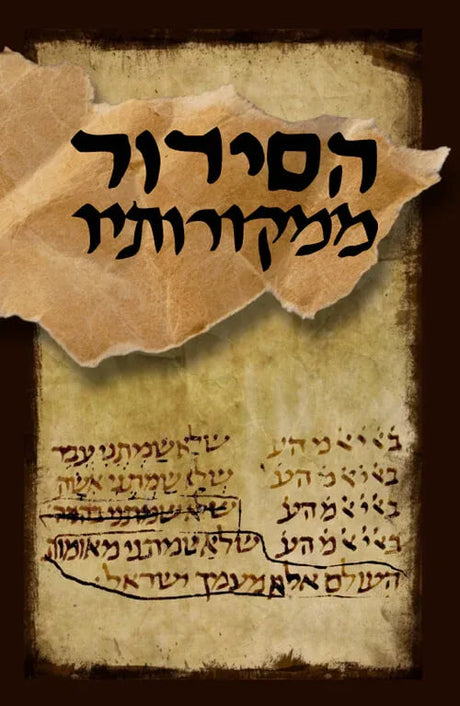 הסידור
ממקורותיו
בא״י א״מ״ה״ע שלא שמתני עבד
בא״י א״מ״ה״ע שלא שמתני אשה
בא״י א״מ״ה״ע שלא שמתני
בא״י א״מ״ה״ע שלא שמתני מאומות
העולם אלא מעמך ישראל